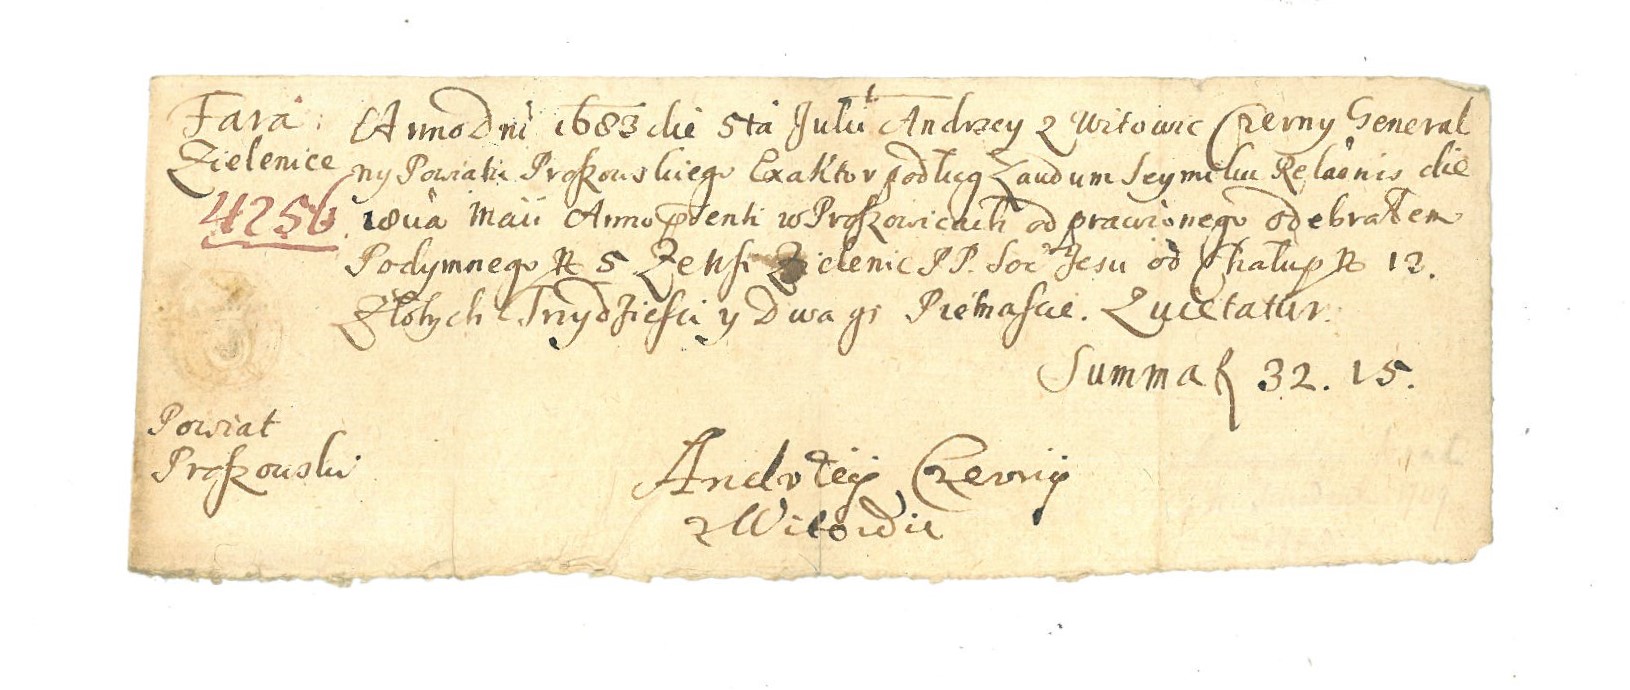 Fara
Zielenice
4256
Anno Dni 1683 die 5ta Julii Andrzey z Witowic Czerny General
ny Powiatu Proszowskiego Exaktor podług Laudum Seymiku Relaonis die
18va Maii Anno pdenti w Proszowicach odprawionego odebrałem
Podymnego N 5 Ze Wsi Zielenic PP. Soc Jesu od Chałup N 13.
Złotych Trzydziesci y Dwa gr Pietnascie. Quietatur.
Summa f 32. 15.
Powiat
Proszowski
Andrzeÿ Czernÿ
z Witowic